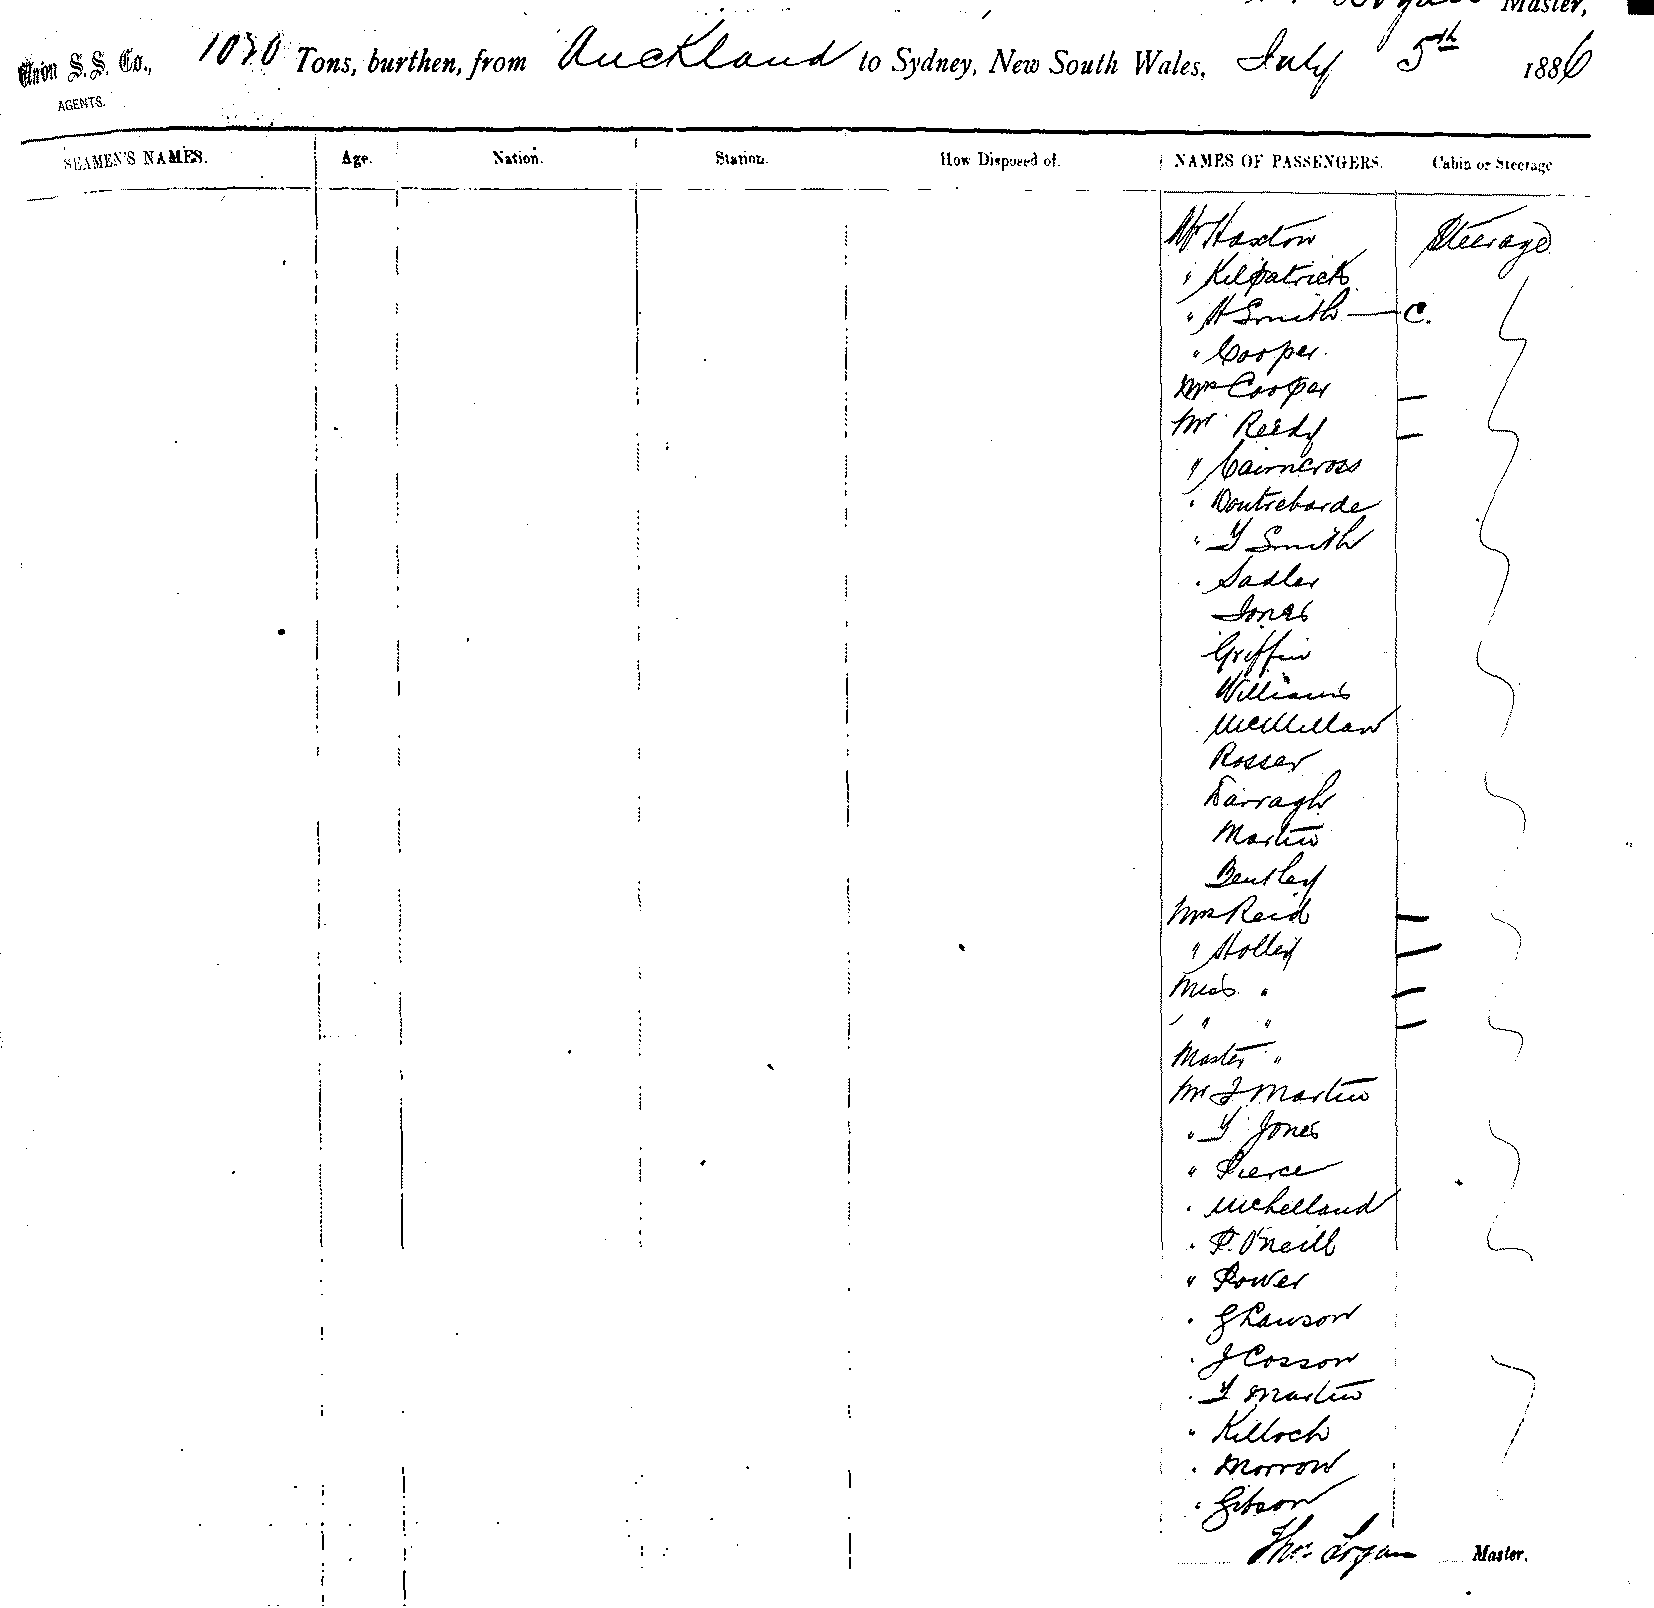 Master,
Union S. S. Co., 1030 Tons, burthen, from Auckland to Sydney, New South Wales, July 5th 1886
AGENTS.
SEAMEN'S NAMES. Age. Nation. Station. How Disposed of. NAMES OF PASSENGERS. Cabin or Steerage
Mr Haxton Steerage
" Kilpatrick
" H Smith — C.
" Cooper
Mrs Cooper —
Mr Reedy —
" Cairncross
" Doutrebarde
" T Smith
" Sadler
Jones
Griffin
Williams
McMillan
Rosser
Darragh
Martin
Bentley
Mrs Reid —
" Holley —
Miss " —
" " —
Master "
Mr J Martin
" T Jones
" Pierce
" McLelland
" P. O'Neill
" Power
" G Lawson
" J Cosson
" T Martin
" Killoch
" Morrow
" Gibson
Thos Logan Master.